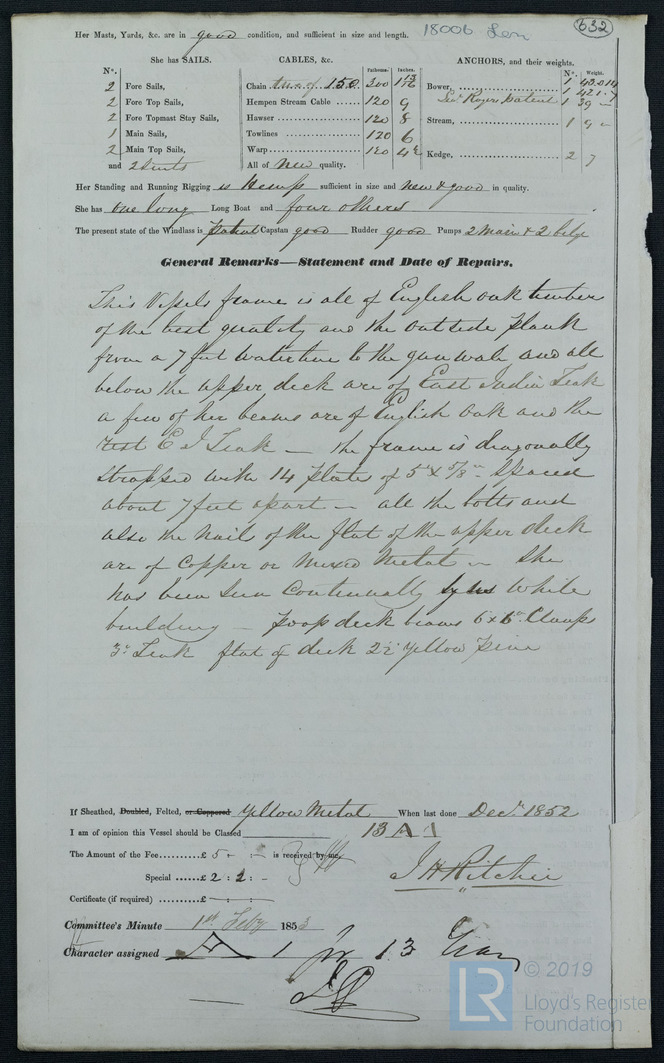 632
18006 Len
Her Masts, Yards, &c. are in good condition, and sufficient in size and length.
She has SAILS.
N°.
2 Fore Sails,
2 Fore Top Sails,
2 Fore Topmast Stay Sails,
1 Main Sails,
2 Main Top Sails,
and
CABLES, &c. Fathoms. Inches.
Chain 150 300
Hempen Stream Cable 120 9
Hawser 120 8
Towlines 120 6
Warp 120
All of New quality.
ANCHORS, and their weights.
N°. Weight.
Bower, 1
1
Rogers patent 1 39 —
Stream, 1 9 —
Kedge, 2 7
Her Standing and Running Rigging is Hemp sufficient in size and new & good in quality.
She has one long Long Boat and four others
The present state of the Windlass is patent Capstan good Rudder good Pumps 2 Main & 2 bilge
General Remarks—Statement and Date of Repairs.
This Vessels frame is all of English oak timber
of the best quality and the outside plank
from a 7 feet waterline to the gunwale and all
below the upper deck are of East India Teak
a few of her beams are of English Oak and the
rest E I Teak — the frame is diagonally
strapped with 14 plates of 5 x 5/8 in. spaced
about 7 feet apart — all the bolts and
also the nails of the flat of the upper deck
are of Copper or Mixed Metal — She
has been seen Continually by us while
building — poop deck beams 6 x 6 Clamps
3 in Teak flat of deck 2½ yellow pine
If Sheathed, Doubled, Felted, or Coppered Yellow Metal When last done Decr. 1852
I am of opinion this Vessel should be Classed 13 A 1
The Amount of the Fee.........£ 5 - - is received by me,
Special ......£ 2 : 2 : -
J H Ritchie
Certificate (if required) .........£ - : - : -
Committee's Minute 1st Feby 1853
Character assigned A 1 for 13 Years
© 2019
LR
Lloyd's Register
Foundation